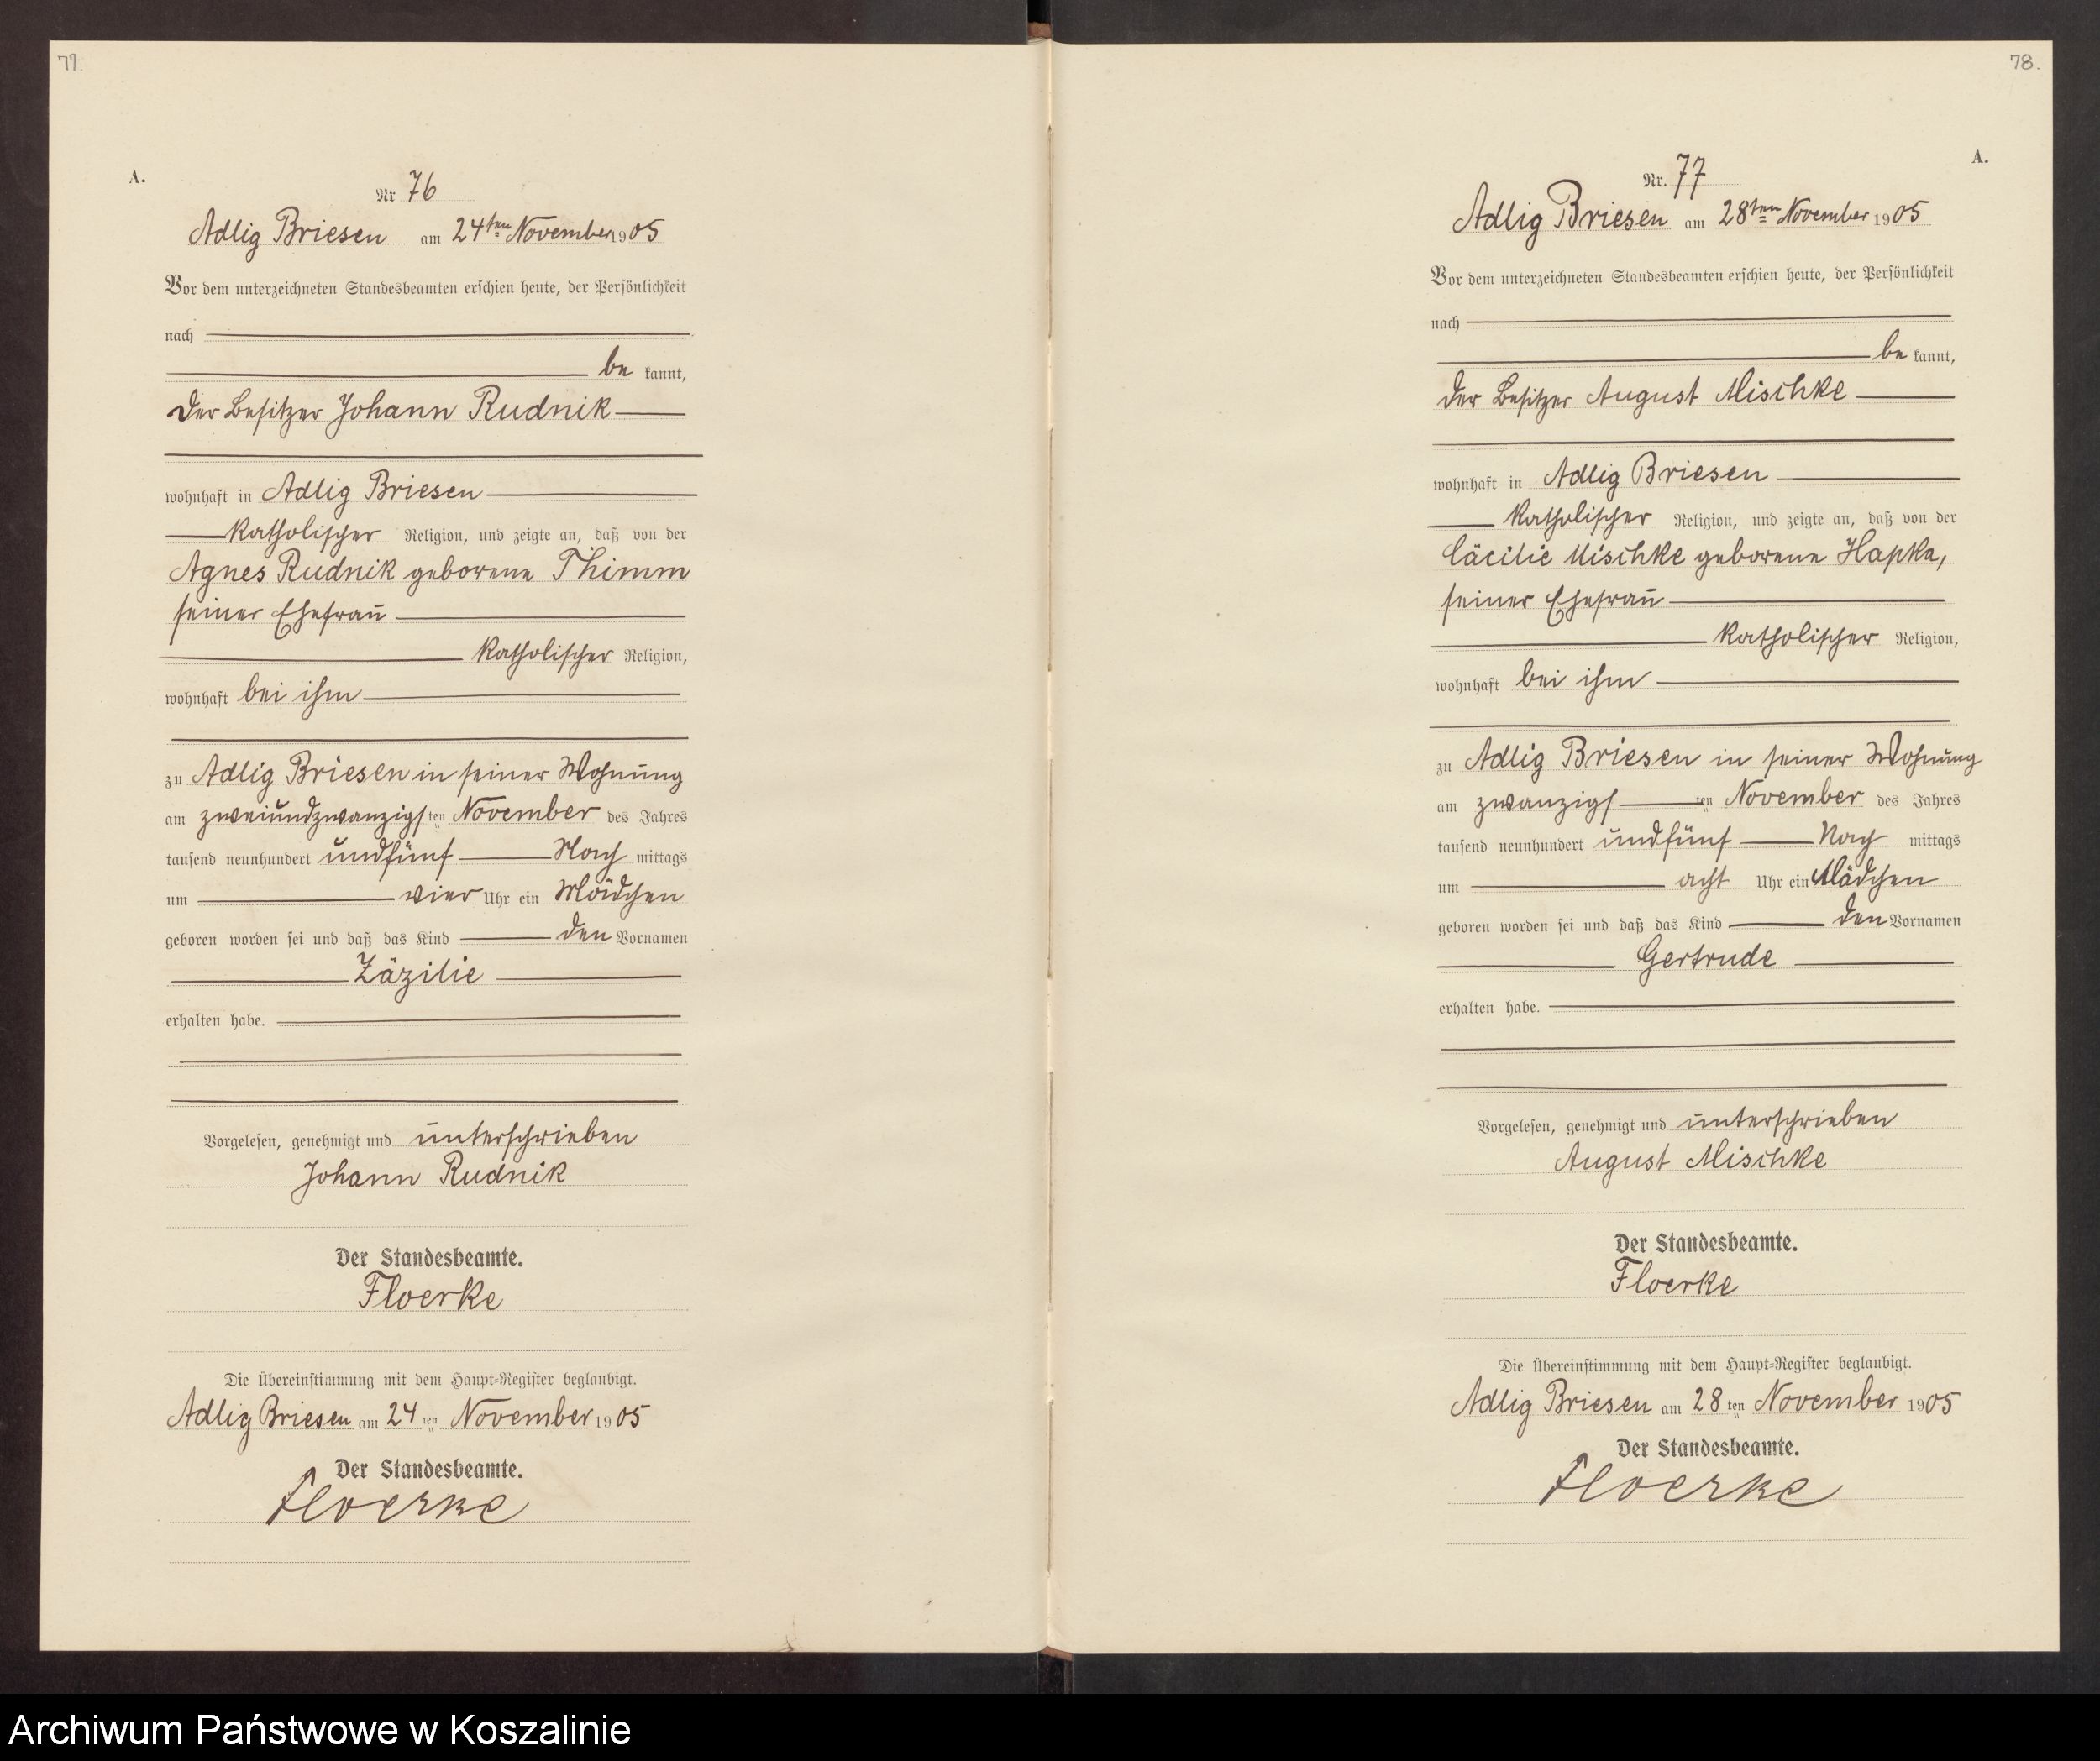 77.
A.
Nr 76
Adlig Briesen am 24ten November 1905
Vor dem unterzeichneten Standesbeamten erschien heute, der Persönlichkeit
nach
be kannt,
der Besitzer Johann Rudnik
wohnhaft in Adlig Briesen
katholischer Religion, und zeigte an, daß von der
Agnes Rudnik geborene Thimm
seiner Ehefrau
katholischer Religion,
wohnhaft bei ihm
zu Adlig Briesen in seiner Wohnung
am zweiundzwanzigsten November des Jahres
tausend neunhundert undfünf Nach mittags
um vier Uhr ein Mädchen
geboren worden sei und daß das Kind den Vornamen
Zäzilie
erhalten habe.
Vorgelesen, genehmigt und unterschrieben
Johann Rudnik
Der Standesbeamte.
Floerke
Die Übereinstimmung mit dem Haupt-Register beglaubigt.
Adlig Briesen am 24 ten November 1905
Der Standesbeamte.
Floerke
78.
A.
Nr. 77
Adlig Briesen am 28ten November 1905
Vor dem unterzeichneten Standesbeamten erschien heute, der Persönlichkeit
nach
be kannt,
der Besitzer August Mischke
wohnhaft in Adlig Briesen
katholischer Religion, und zeigte an, daß von der
Cäcilie Mischke geborene Hapka,
seiner Ehefrau
katholischer Religion,
wohnhaft bei ihm
zu Adlig Briesen in seiner Wohnung
am zwanzigsten November des Jahres
tausend neunhundert undfünf Nach mittags
um acht Uhr ein Mädchen
geboren worden sei und daß das Kind den Vornamen
Gertrude
erhalten habe.
Vorgelesen, genehmigt und unterschrieben
August Mischke
Der Standesbeamte.
Floerke
Die Übereinstimmung mit dem Haupt-Register beglaubigt.
Adlig Briesen am 28 ten November 1905
Der Standesbeamte.
Floerke
Archiwum Państwowe w Koszalinie